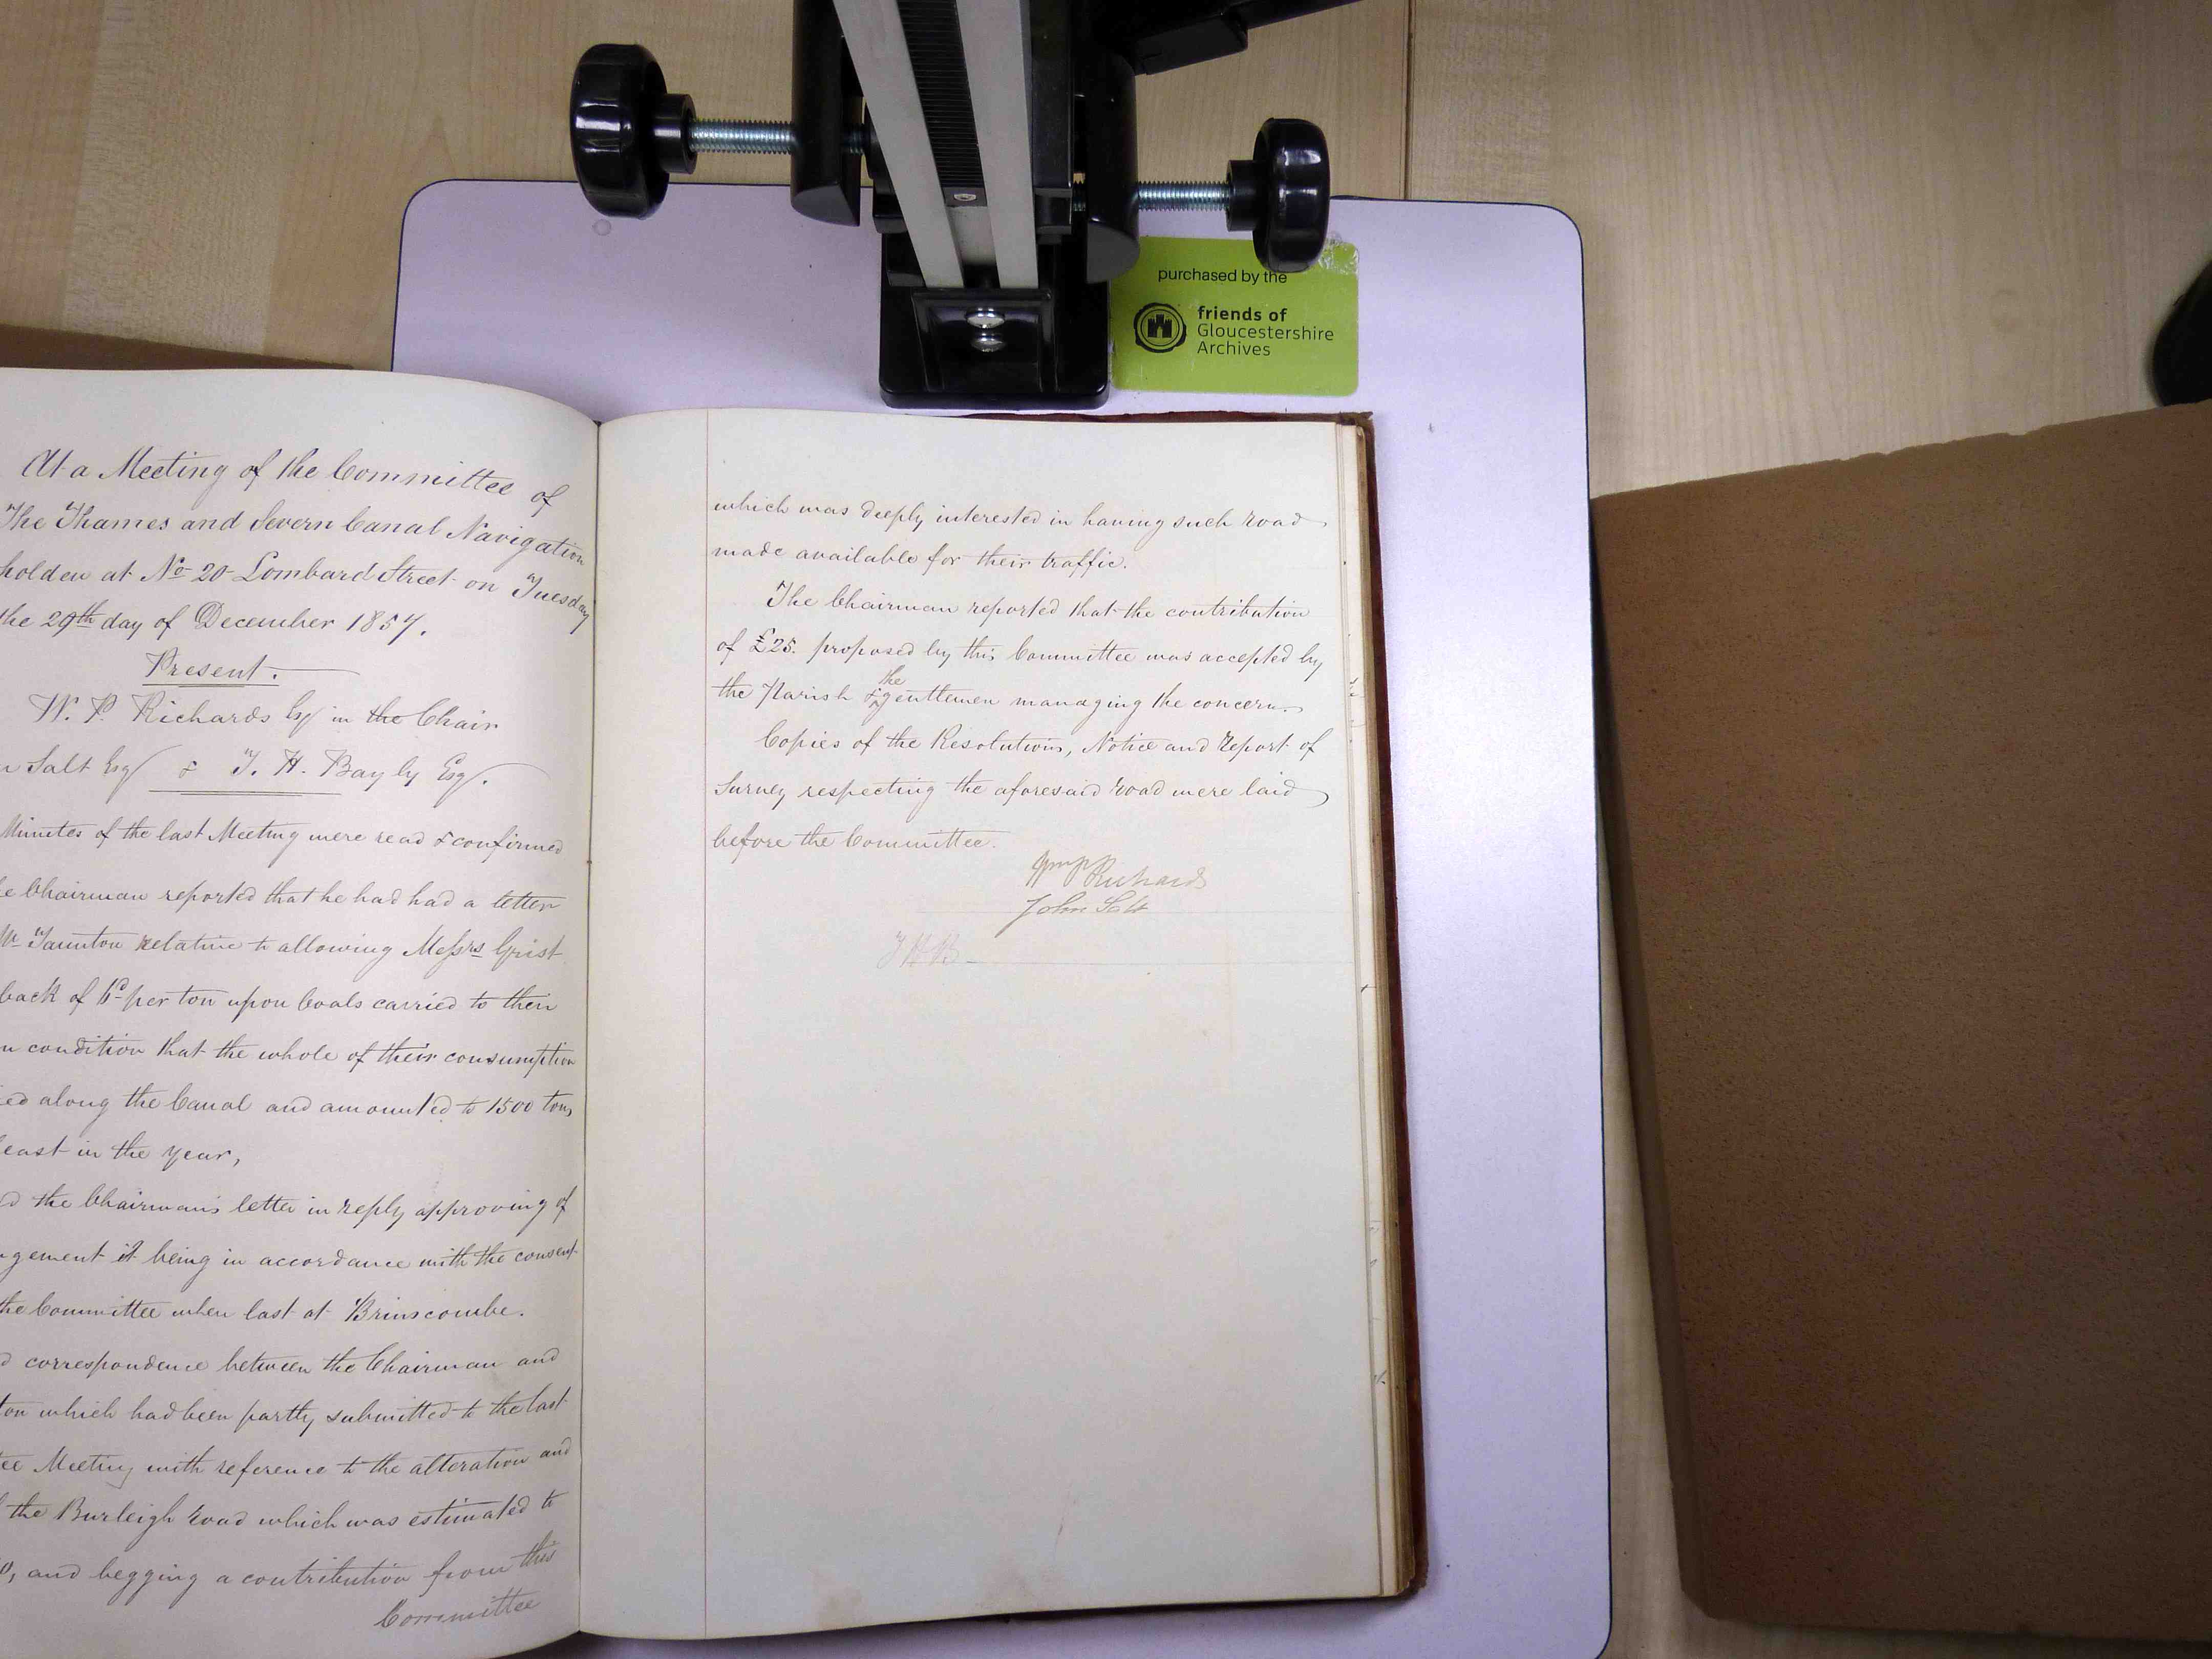 At a Meeting of the Committee of
The Thames and Severn Canal Navigation
holden at No 20 Lombard Street on Tuesday
the 29th day of December 1857.
Present.
W. P. Richards Esq in the Chair
Salt Esq & T. H. Bayly Esq.
Minutes of the last Meeting were read & confirmed
Chairman reported that he had had a letter
Mr Taunton relative to allowing Messrs Grist
back of 6d per ton upon Coals carried to their
condition that the whole of their consumption
along the Canal and amounted to 1500 tons
in the year,
the Chairman's letter in reply approving of
it being in accordance with the consent
the Committee when last at Brimscombe.
correspondence between the Chairman and
which had been partly submitted to the last
Meeting with reference to the alteration and
the Burleigh road which was estimated to
and begging a contribution from this
Committee
purchased by the
friends of
Gloucestershire
Archives
which was deeply interested in having such road
made available for their traffic.
The Chairman reported that the contribution
of £25. proposed by this Committee was accepted by
the Parish & the gentlemen managing the concern.
Copies of the Resolutions, Notice and Report of
Survey respecting the aforesaid road were laid
before the Committee.
Wm P Richards
John Salt
T H B